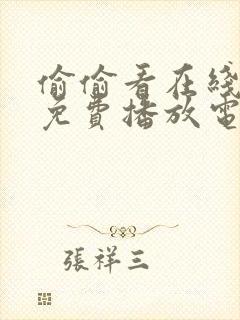 偷偷看在綫
免費播放電
張祥三